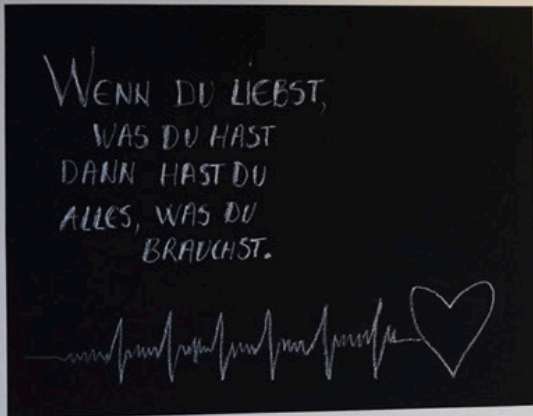 WENN DU LIEBST,
WAS DU HAST
DANN HAST DU
ALLES, WAS DU
BRAUCHST.